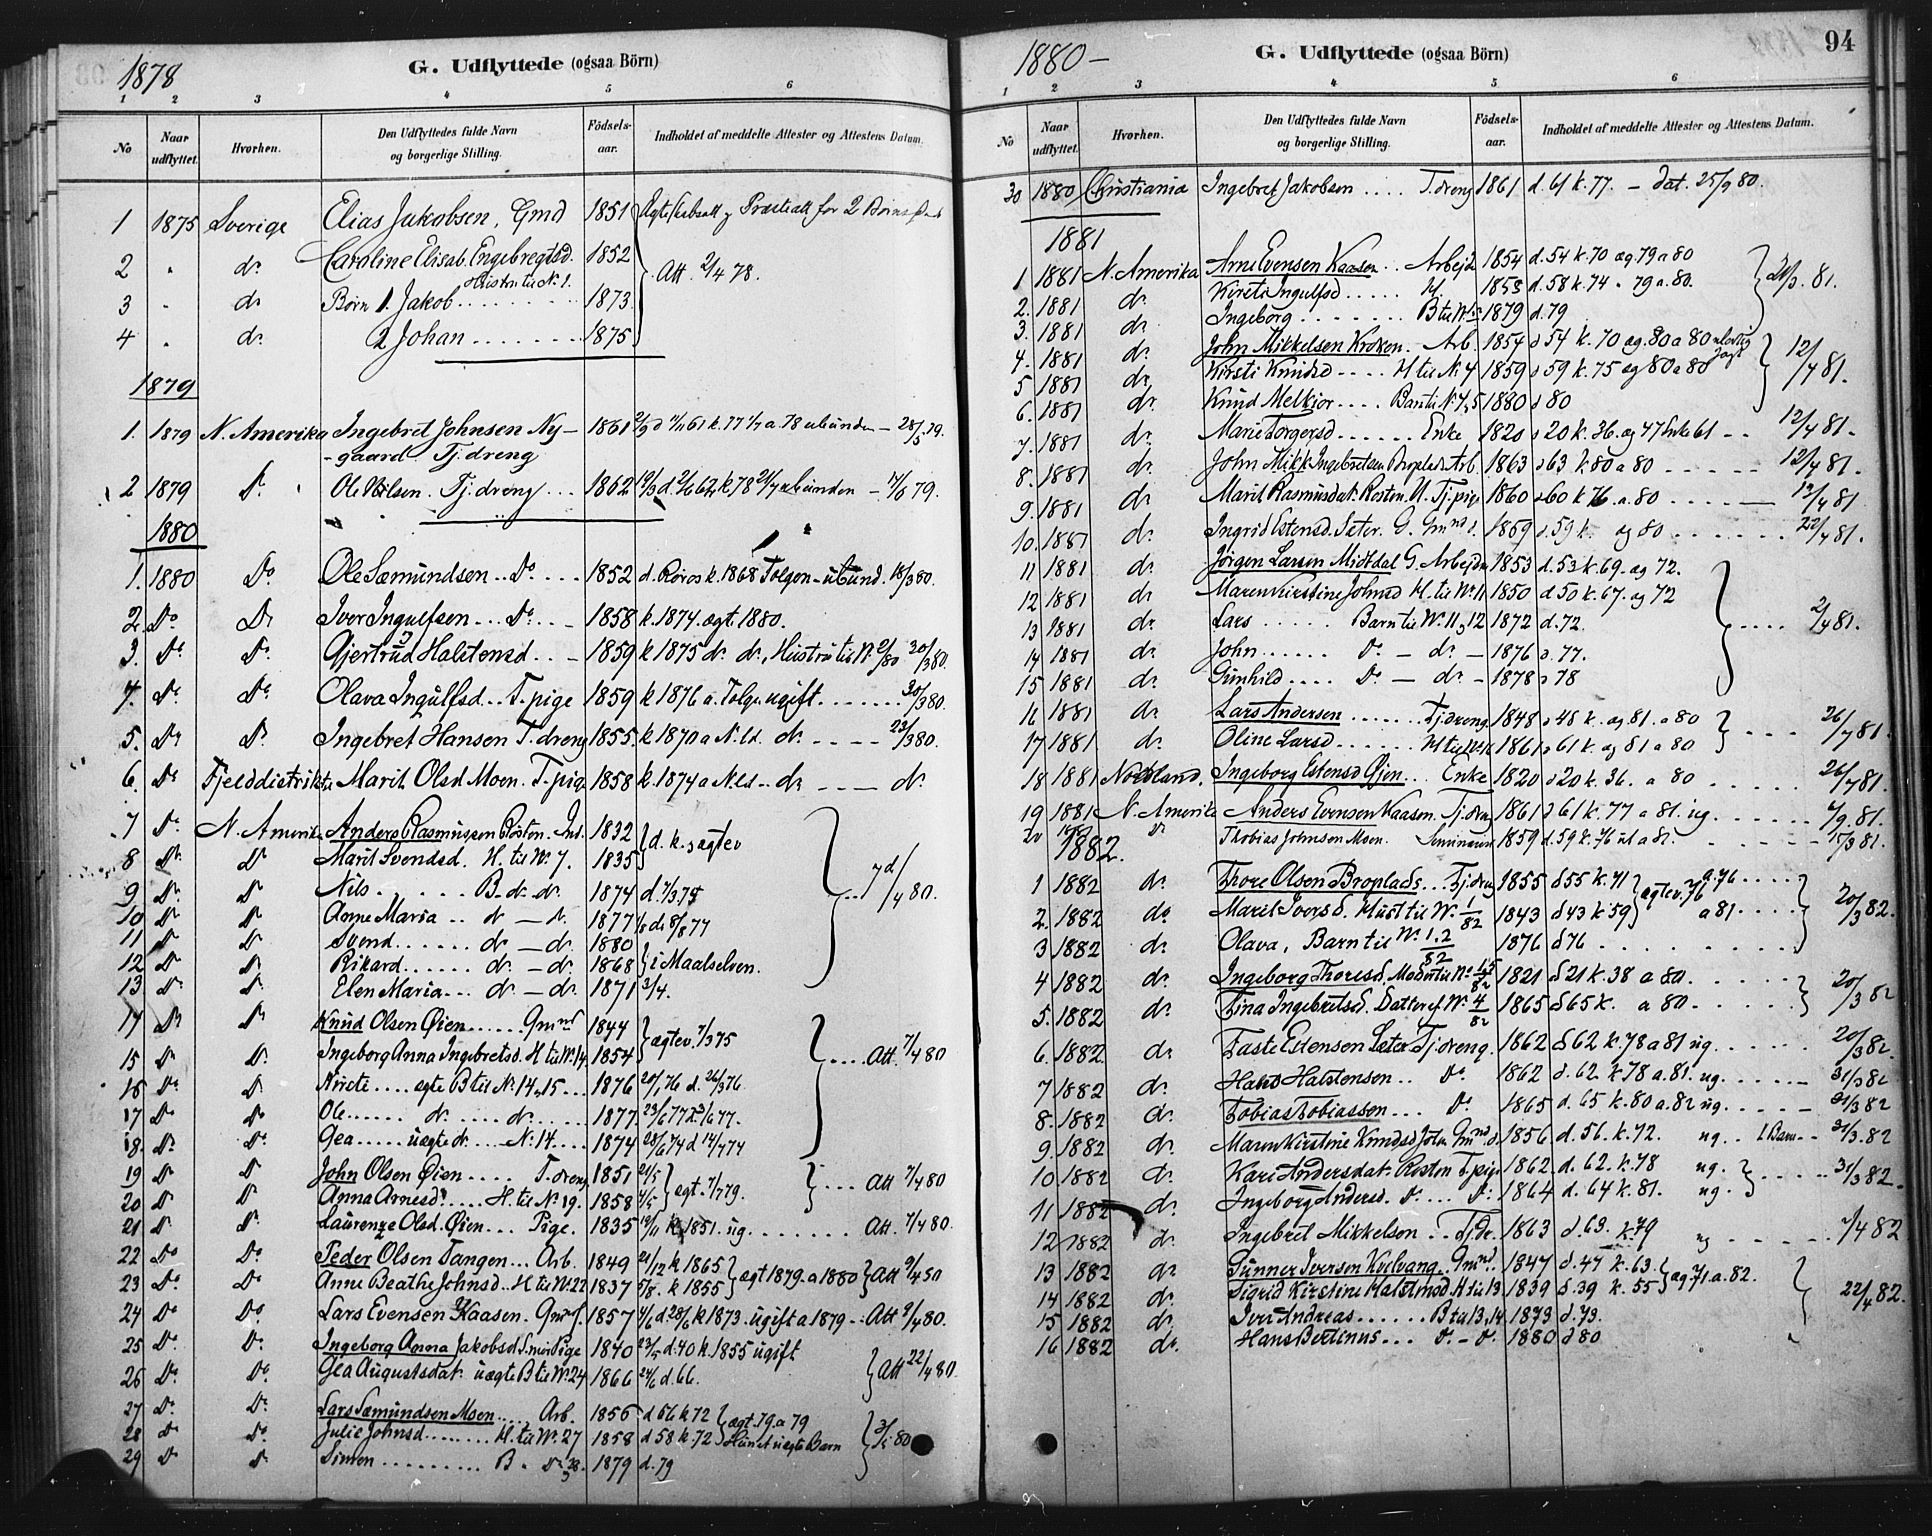 1878
G. Udflyttede (ogsaa Börn)
1 2 3 4 5 6
No Naar udflyttet. Hvorhen. Den Udflyttedes fulde Navn og borgerlige Stilling. Födsels-aar. Indholdet af meddelte Attester og Attestens Datum.
1 1875 Sverige Elias Jakobsen, Gmd 1851
2 " do Caroline Elisab. Engebregtsd. 1852 Att. 2/4 78.
Hustru til No 1.
3 " do Børn 1. Jakob 1873
4 " do 2 Johan 1875
1879
1. 1879 N. Amerika Ingebret Johnsen Ny- 1861 28/5 79.
-gaard Tj. dreng
2 1879 Do Ole Nilsen. Tj. dreng 1862
1880
1. 1880 Do Ole Sæmundsen .. Do 1852 d. Röros k. 1868 Tolgen - ubund. 18/3 80.
2. Do Do Iver Ingulfsen ... Do 1858 k. 1874. ægt 1880.
3. Do Do Gjertrud Halstensd. 1859 k 1875 do do, Hustru til No 2/80 20/3 80.
4. Do Do Olava Ingulfsd... T. pige 1859 k 1876 a. Tolgen ugift 30/3 80.
5. Do Do Ingebret Hansen T. dreng 1855. k 1870 a N. ld. do 23/3 80.
6. Do Fjelddistrikt Marit Olsd. Moen. T. pige 1858 k. 1874 a N. ld - do do
7 Do N. Amerika Anders Rasmussen Rosten. Ind. 1832 d. k. ægtev
8 Do Do Marit Svendsd. H. til No 7. 1835
9 Do Do Nils B. do do. 1874
10 Do Do Anne Maria do - do 1877
11 Do Do Svend do - do. 1880
12 Do Do Rikard do - do. 1868 i Maalselven.
13 Do Do Elen Maria do - do. 1871 3/4.
14 Do Do Knud Olsen Øien Gmnd 1844 ægtev. 7/3 75
15 Do Do Ingeborg Anna Ingebretsd. H til No 14. 1854 Att. 7/4 80
16 Do Do ægte B til No 14, 15 1876
17 Do Do Ole do do 1877.
18. Do Do Gea uægte do No 14 1874
19 Do Do John Olsen Øien T. dreng 1851 Att 7/4 80
20 Do Do Anna Arnesd. H. til No 19. 1858
21 Do Do Laurenze Olsd. Øien Pige. 1835 k 1851. ug. Att. 7/4 80.
22 Do Do Peder Olsen Tangen Arb. 1849 k 1865
23. Do Do Anne Beathe Johnsd. H til No 22 1837 k 1855 ægt 1879. a 1880
24 Do Do Lars Evensen Kaasen. Gmnds. 1857 k 1873. ugift a 1879 Att 9/4 80.
25 Do Do Ingeborg Anna Jakobsd. Pige 1840 d. 40 k. 1855 ugift
26 Do Do Gea Augustsdat. uægte B til No 24 1866 24/6 d. 66. Att 22/4 80.
27 Do Do Lars Sæmundsen Moen Arb. 1856 d 56 k 72 ægt. 79. a 79
28 Do Do Julie Johnsd. H. til No 27 1858 d 58 k. 72
29 Do Do Simen B. 1879 d. 79
1880 -
G. Udflyttede (ogsaa Börn)
94
1 2 3 4 5 6
No Naar udflyttet. Hvorhen. Den Udflyttedes fulde Navn og borgerlige Stilling. Födsels-aar. Indholdet af meddelte Attester og Attestens Datum.
30 1880 Christiania Ingebret Jakobsen T. dreng 1861 d. 61 k. 77. - dat. 25/9 80.
1881
1 1881 N. Amerika Arne Evensen Kaasen Arbejd 1854 d. 54 k. 70 æg. 79 a 80
2. 1881 do Kirsti Ingulfsd. H. 1858 d. 58 k. 74 " 79 a. 80.
3. 1881 do Ingeborg 1879 d. 79
4. 1881 do John Mikkelsen Kroken Arb. 1854 d 54 k. 70 æg. 80 a 80
5 1881 do Kirsti Knudsd H til No 4 1859 d 59 k. 75 æg 80 a 80
6. 1881 do Knud Melkior Barn til No 4, 5 1880 d 80
7. 1881 do Marie Torgersd Enke 1820 d 20 k. 36. æg 47 Enke 61 12/4 81.
8. 1881 do John Mikk. Ingebretsen Bropladsen Arb. 1863 d 63 k. 80 a 80 12/4 81.
9. 1881 do Marit Rasmusdat. Rosten. U. Tj. pige 1860 d 60 k 76 a. 80 12/4 81
10. 1881 do Ingrid Estensd. Sæter. G. Gmnd 1859 d. 59 k. æg 80 22/4 81.
11 1881 do Jörgen Larsen Midtdal G. Arbejd 1853 d. 53 k. 69. æg 72.
12 1881 do Maren Kirstine Johnsd H. til No 11 1850 d 50 k. 67. æg 72
13 1881 do Lars Barn til No 11, 12 1872 d. 72. 2/4 81.
14 1881 do John Do - do - 1876 d. 77.
15 1881 do Gunhild Do - do - 1878 d 78
16 1881 do Lars Andersen Tj. dreng 1848 d 48 k. æg 81. a 80 26/4 81.
17 1881 do Oline Larsd H til No 16 1861 d 61 k. æg 81 a 80
18 1881 Nordland. Ingeborg Estensd Øjen Enke 1820 d 20 k 36. a 80
19 1881 N. Amerika Anders Evensen Kaasen. Tj. dreng 1861 d 61 k. 77 a 81. ug.
20 do Thobias Johnsen Moen. Seminarist 1859 d. 59 k. 76
1882.
1 1882 do Thore Olsen Broplads Tj. dreng 1855 d 55 k. 71 ægtev. 76 a. 76
2. 1882 do Marit Iversd. Hust til No 1/82 1843 d 43 k 59 a 81 20/3 82.
3 1882 do Olava, Barn til No 1.2/82 1876 d 76
4 1882 do Ingeborg Thoresd. 1821 d 21 k. 38 a 80 20/3 82
5. 1882 do Tina Ingebretsd. Datter af No 4/82 1865 d 65 k. a 80
6. 1882 do Faste Estensen Sæter Tj. dreng. 1862 d 62 k. 78 a 81 ug. 20/3 82.
7 1882 do Halstensen Do 1862 d. 62. k. 78 a. 81. ug. 31/3 82
8. 1882 do Tobias Tobiassen Do 1865 d. 65 k. 80 a. 82 ug. 31/3 82
9. 1882 do Maren Kirstine Knudsd 1856 d. 56. k. 72. ug. 1 Barn 31/3. 82
10 1882 do Kari Andersdat. Rosten T. pige 1862 d. 62. k. 78 ug. 31/3 82.
11 1882 do Ingeborg Andersd. Do Do 1864 d. 64 k. 81. ug.
12 1882 do Ingebret Mikkelsen Tj. dr. 1863 d. 63. k. 79 ug
13 1882 do Gunner Iversen Kvilvang. Gmnd. 1847 d. 47 k. 63. æg. 71 a. 82.
14 1882 do Sigrid Kirstine Halstensd H til 13 1839 d. 39 k. 55 22/4 82.
15 1882 do Iver Andreas B til 13, 14 1873 d. 73.
16 1882 do Hans Bertinus Do - Do 1880 d 80